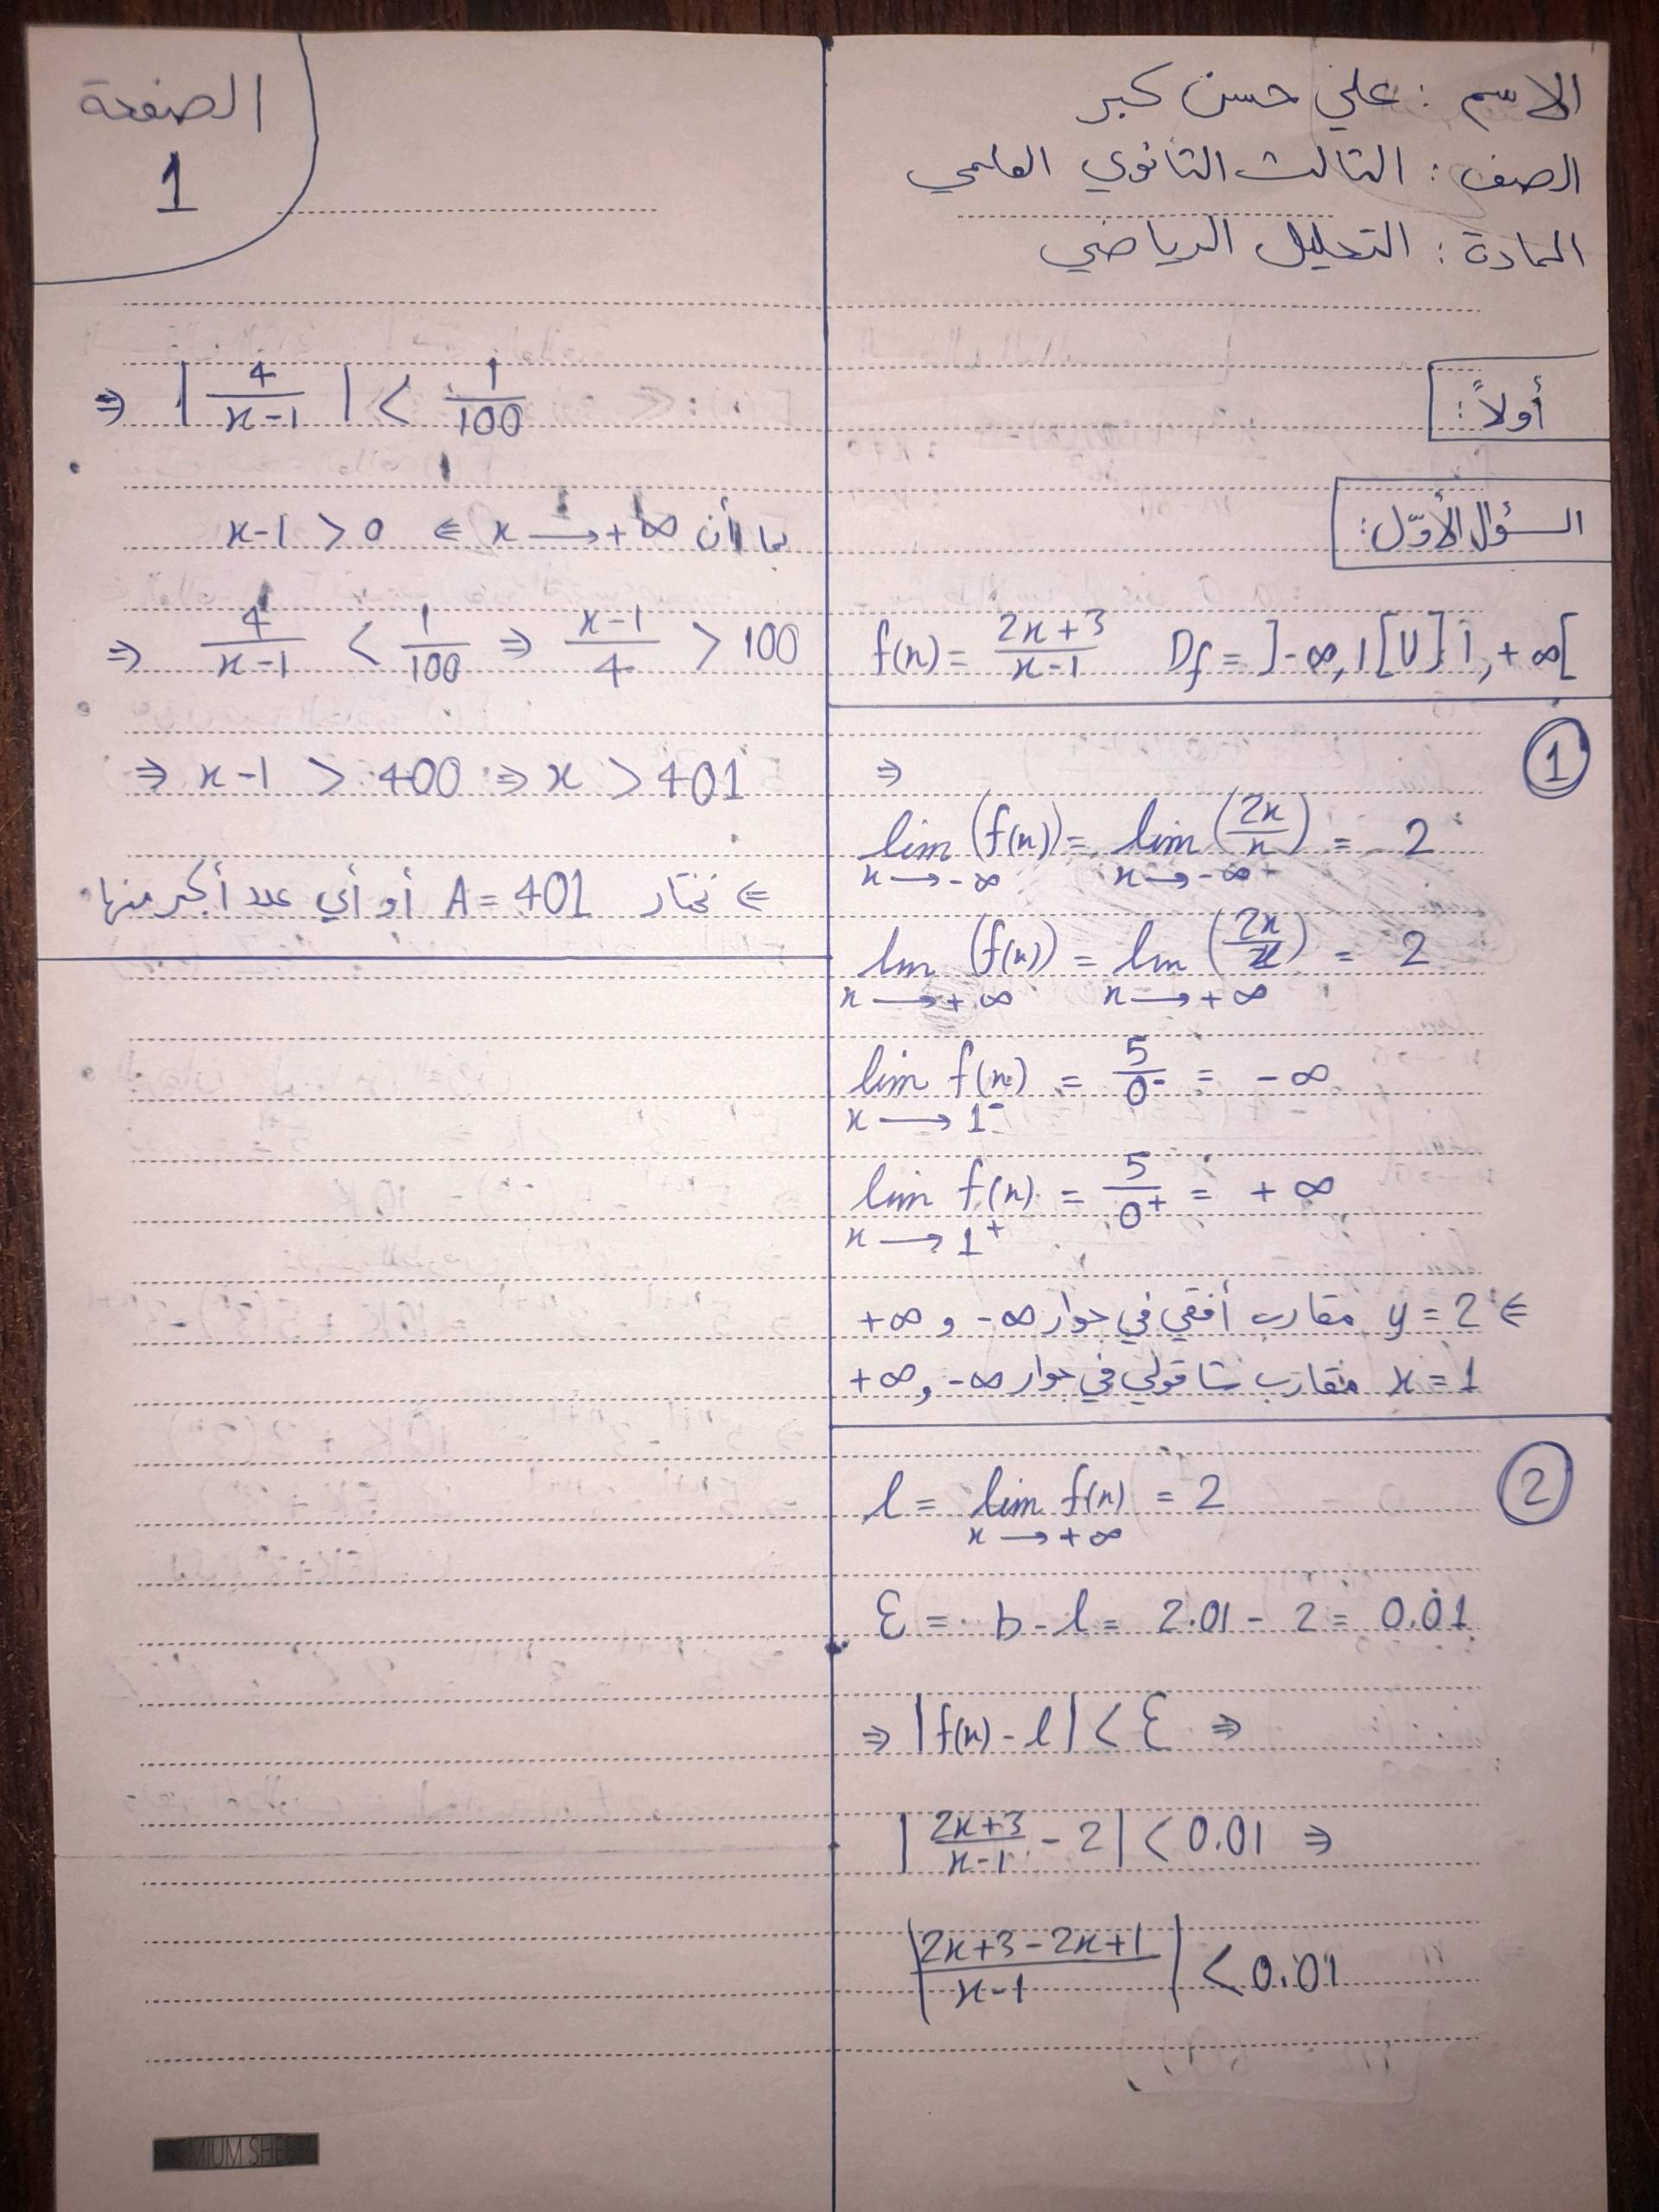 الاسم : علي حسن كبر
الصف : الثالث الثانوي العلمي
المادة : التحليل الرياضي
الصفحة
1
أولاً :
السؤال الأوّل :
f(x) = (2x+3)/(x-1) Df = ]-∞, 1[ U ]1, +∞[
1
⇒
lim (f(x)) = lim (2x/x) = 2
x → -∞ x → -∞
lim (f(x)) = lim (2x/x) = 2
x → +∞ x → +∞
lim f(x) = 5/0⁻ = -∞
x → 1⁻
lim f(x) = 5/0⁺ = +∞
x → 1⁺
⇐ y = 2 مقارب أفقي في جوار -∞ و +∞
x = 1 مقارب شاقولي في جوار -∞ و +∞
2
l = lim f(x) = 2
x → +∞
Ɛ = b - l = 2.01 - 2 = 0.01
⇒ |f(x) - l| < Ɛ ⇒
|(2x+3)/(x-1) - 2| < 0.01 ⇒
|(2x+3-2x+1)/(x-1)| < 0.01
⇒ |4/(x-1)| < 1/100
بما أن x → +∞ ⇐ x-1 > 0
⇒ 4/(x-1) < 1/100 ⇒ (x-1)/4 > 100
⇒ x-1 > 400 ⇒ x > 401
⇐ نختار A = 401 أو أي عدد أكبر منها